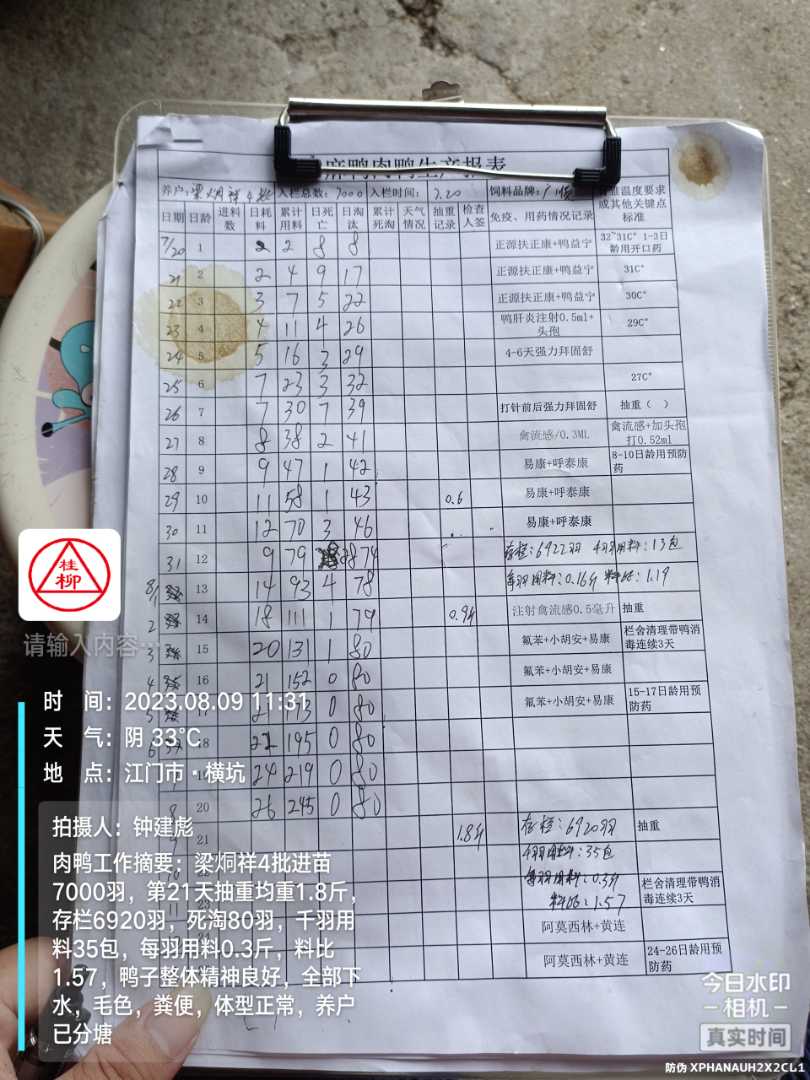 麻鸭肉鸭生产报表
养户: 梁炯祥4批 入栏总数: 7000 入栏时间: 7.20 饲料品牌: 温度要求或其他关键点标准
日期 日龄 进料数 日耗料 累计用料 日死亡 日淘汰 累计死淘 天气情况 抽重记录 检查人签 免疫、用药情况记录
7/20 1 2 2 8 8 正源扶正康+鸭益宁 32~31C° 1-3日龄用开口药
21 2 2 4 9 17 正源扶正康+鸭益宁 31C°
22 3 3 7 5 22 正源扶正康+鸭益宁 30C°
23 4 4 11 4 26 鸭肝炎注射0.5ml+头孢 29C°
24 5 5 16 3 29 4-6天强力拜固舒
25 6 7 23 3 32 27C°
26 7 7 30 7 39 打针前后强力拜固舒 抽重（ ）
27 8 8 38 2 41 禽流感/0.3ML 禽流感+加头孢打0.52ml
28 9 9 47 1 42 易康+呼泰康 8-10日龄用预防药
29 10 11 58 1 43 0.6 易康+呼泰康
30 11 12 70 3 46 易康+呼泰康
31 12 9 79 28 74 存栏:6922羽 千羽用料:13包
8/1 13 14 93 4 78 每羽用料:0.16斤 料比:1.19
2 14 18 111 1 79 0.9斤 注射禽流感0.5毫升 抽重
3 15 20 131 1 80 氟苯+小胡安+易康 栏舍清理带鸭消毒连续3天
4 16 21 152 0 80 氟苯+小胡安+易康
5 17 21 173 0 80 氟苯+小胡安+易康 15-17日龄用预防药
6 18 22 195 0 80
19 24 219 0 80
8 20 26 245 0 80
9 21 1.8斤 存栏:6920羽 抽重
千羽用料:35包
每羽用料:0.3斤 栏舍清理带鸭消毒连续3天
11 23 料比:1.57
阿莫西林+黄连
阿莫西林+黄连 24-26日龄用预防药
桂柳
请输入内容…
时 间：2023.08.09 11:31
天 气：阴 33℃
地 点：江门市·横坑
拍摄人：钟建彪
肉鸭工作摘要：梁炯祥4批进苗
7000羽，第21天抽重均重1.8斤，
存栏6920羽，死淘80羽，千羽用
料35包，每羽用料0.3斤，料比
1.57，鸭子整体精神良好，全部下
水，毛色，粪便，体型正常，养户
已分塘
今日水印
相机
真实时间
防伪 XPHANAUH2X2CL1